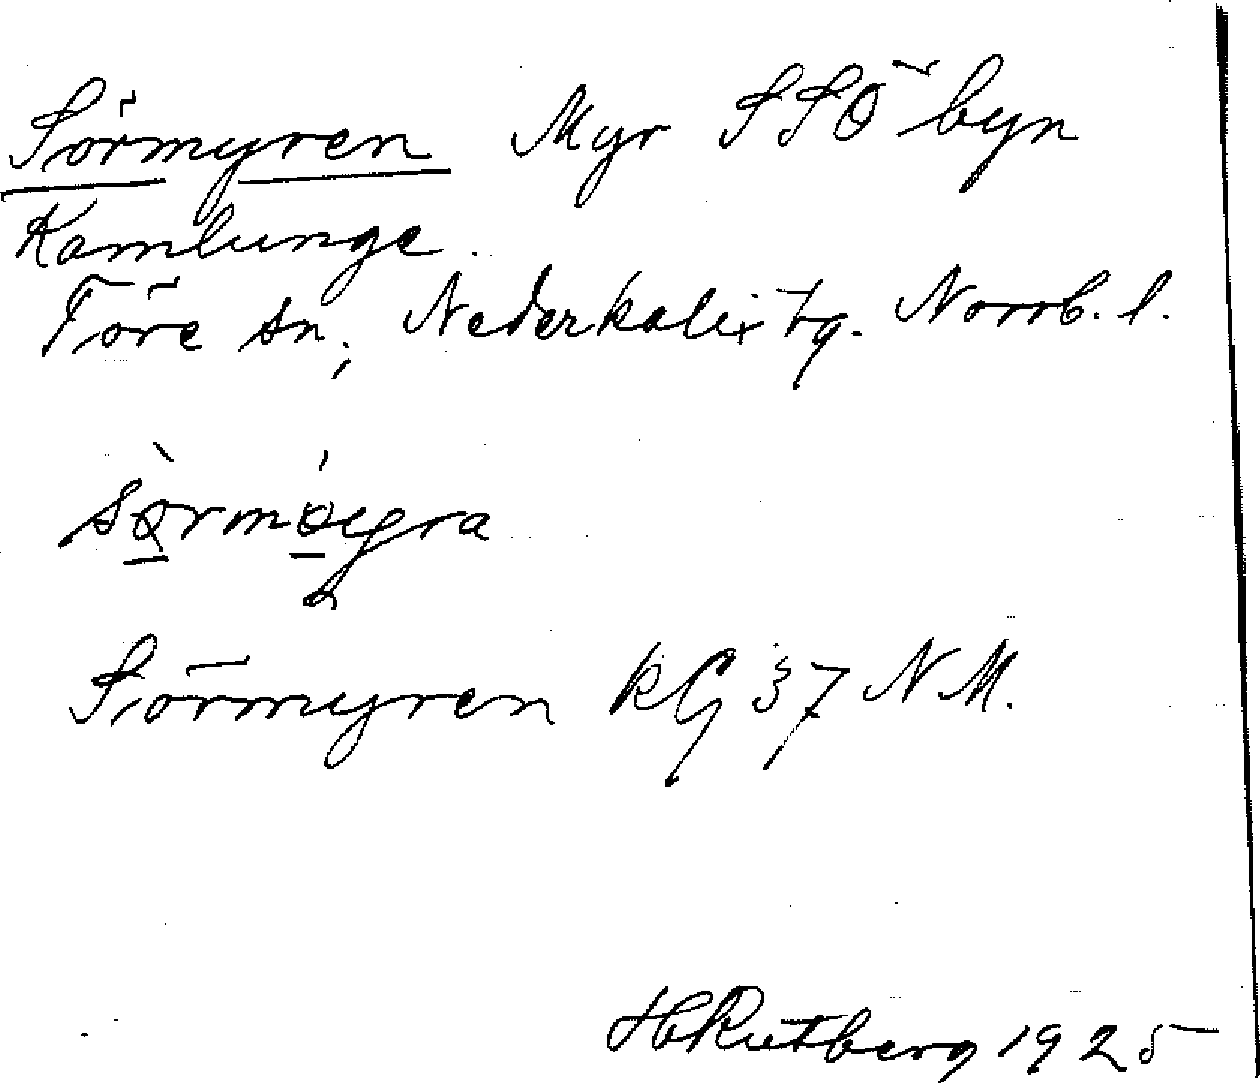 Sörmyren Myr SSÖ byn
Kamlunge.
Töre sn, Nederkalix tg. Norrb. l.
sø̱̀rmǿ̱yra
Sörmyren kG 37 NM.
H Rutberg 1925